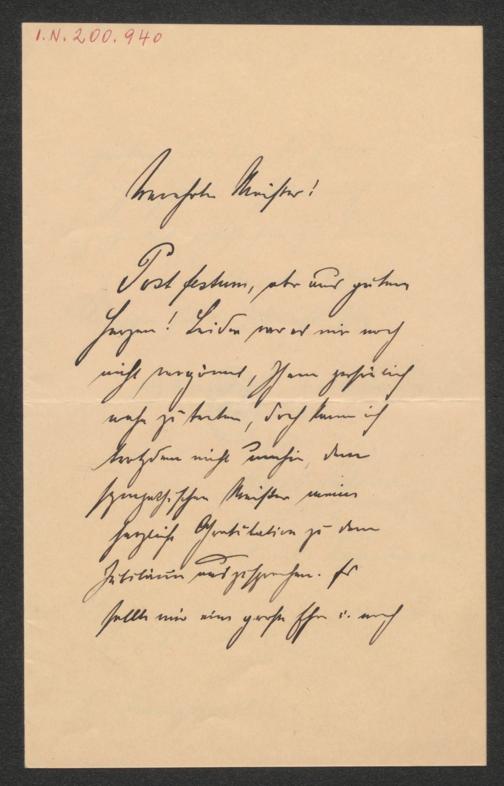 I.N. 200.940
Verehrter Meister!
Post festum, aber aus gutem
Herzen! Leider war es mir noch
nicht vergönnt, Ihnen persönlich
nahe zu treten, doch kann ich
trotzdem nicht umhin, dem
sympathischen Meister meine
herzliche Gratulation zu dem
Jubiläum auszusprechen. Es
sollte mir eine große Ehre u. noch